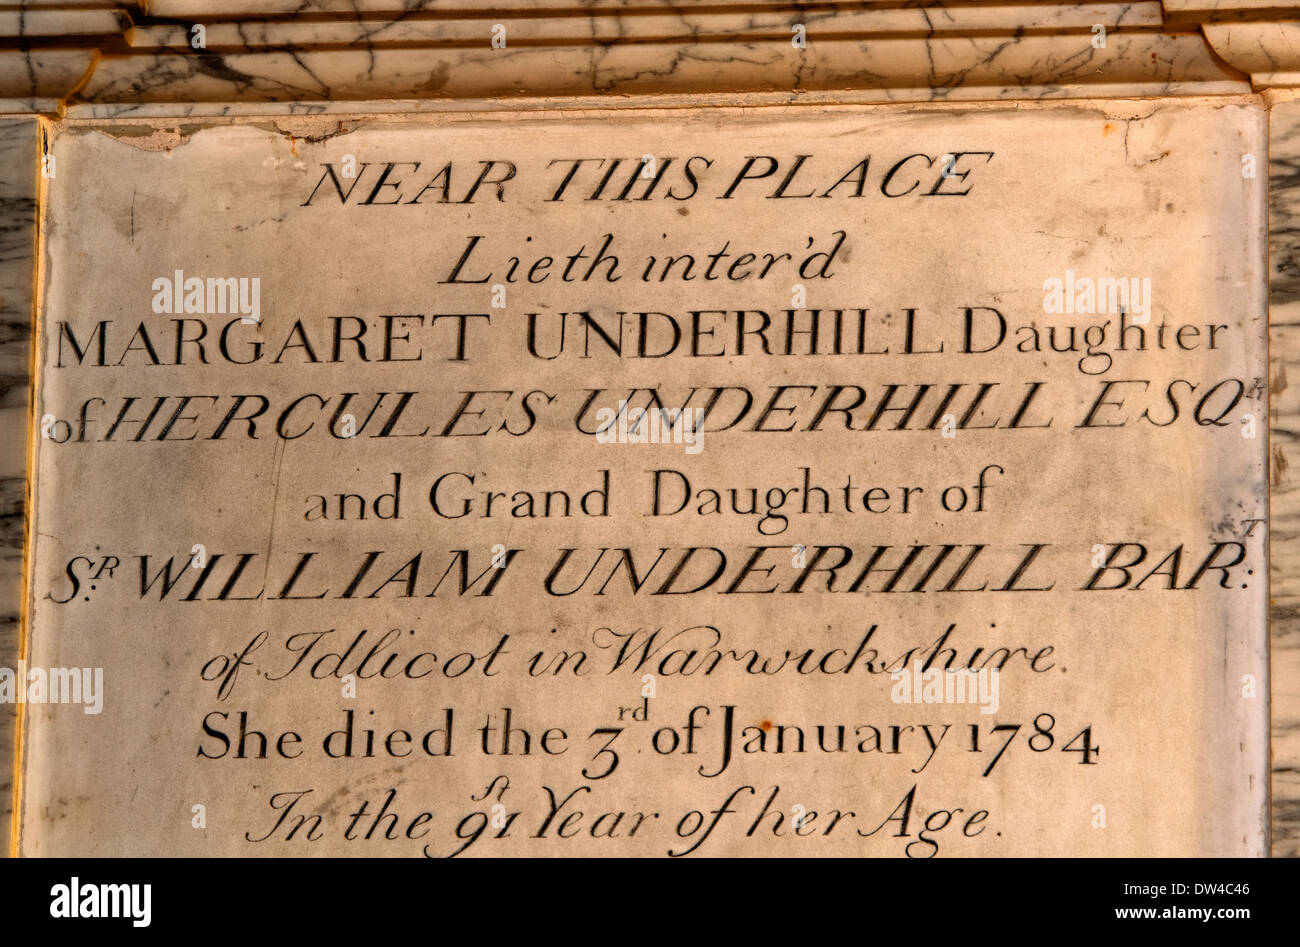 NEAR THIS PLACE
Lieth inter'd
MARGARET UNDERHILL Daughter
of HERCULES UNDERHILL ESQR
and Grand Daughter of
SR. WILLIAM UNDERHILL BART:
of Idlicot in Warwickshire.
She died the 3rd. of January 1784
In the 91st Year of her Age.
alamy
Image ID: DW4C46
www.alamy.com